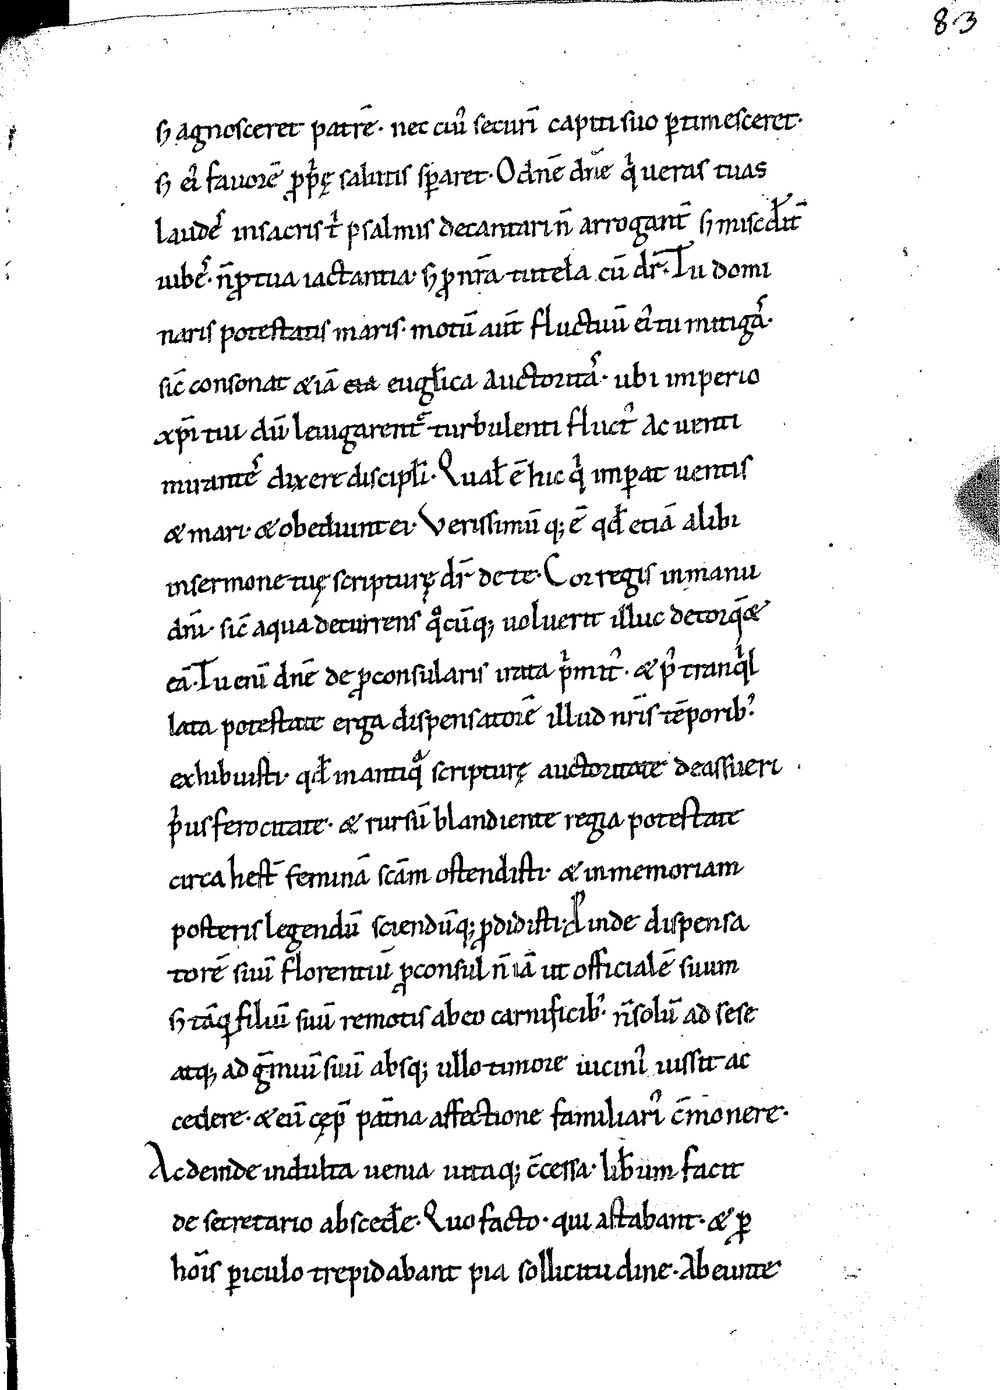 83
ꜱ agnosceret patrē· nec cui᷒ securī capiti suo ꝑtimesceret·
ꜱ ei᷒ fauorē ꝓp̄ę salutis sꝑaret· O dn̄e dn̄e qi ueras tuas
laudeſ᷒ in sacris t̄ psalmis decantari n̄ arrogant̄ ꜱ misc̄dit̄
iube᷒· n̄ ꝓ tua iactantia· ꜱ ꝓ nr̄a tutela cū dr̄· Tu domi
naris potestatis maris· motū aūt fluctuū ei᷒ tu mitiga᷒·
sic̄ consonat & iā euglica auctorita᷒· ubi imperio
xp̄i tui dū leuigarent̄ turbulenti fluct᷒ ac uenti
mirante᷒ dixere discipli· Qualē hic qi imꝑat uentis
& mari· & obediunt ei· Verissimū q; ē qd̄ etiā alibi
in sermone tuę scripturę dr̄ de te· Cor regis in manu
dn̄i· sic̄ aqua decurrens q̊cūq; uoluerit illuc detorq̄&
eā· Tu eni dn̄e de ꝓconsularis irata pimit᷒· & p᷒ tranqil
lata potestate erga dispensatorē illud nr̄is tēporib᷒
exhibuisti· qd̄ in antiqa scripturę auctoritate de assueri
pius ferocitate· & rursū blandiente regia potestate
circa hest̄ feminā scām ostendisti· & in memoriam
posteris legendū sciendūq; ꝓdidisti· Dinde dispensa
torē suū florentiū ꝓconsul n̄ iā ut officialē suum
ꜱ tāq filiū suū remotis ab eo carnificib᷒ n̄ solū ad sese
atq; ad gm̄iū suū absq; ullo timore uicini᷒ iussit ac
cedere· & eū cęp̄ pat̄na affectione familiari᷒ c̄monere·
Ac deinde indulta uenia uitaq; c̄cessa· lib̄um facit
de secretario abscede̅· Quo facto· qui astabant· & ꝓ
hoīs ꝑiculo trepidabant pia sollicitudine· Abeunte